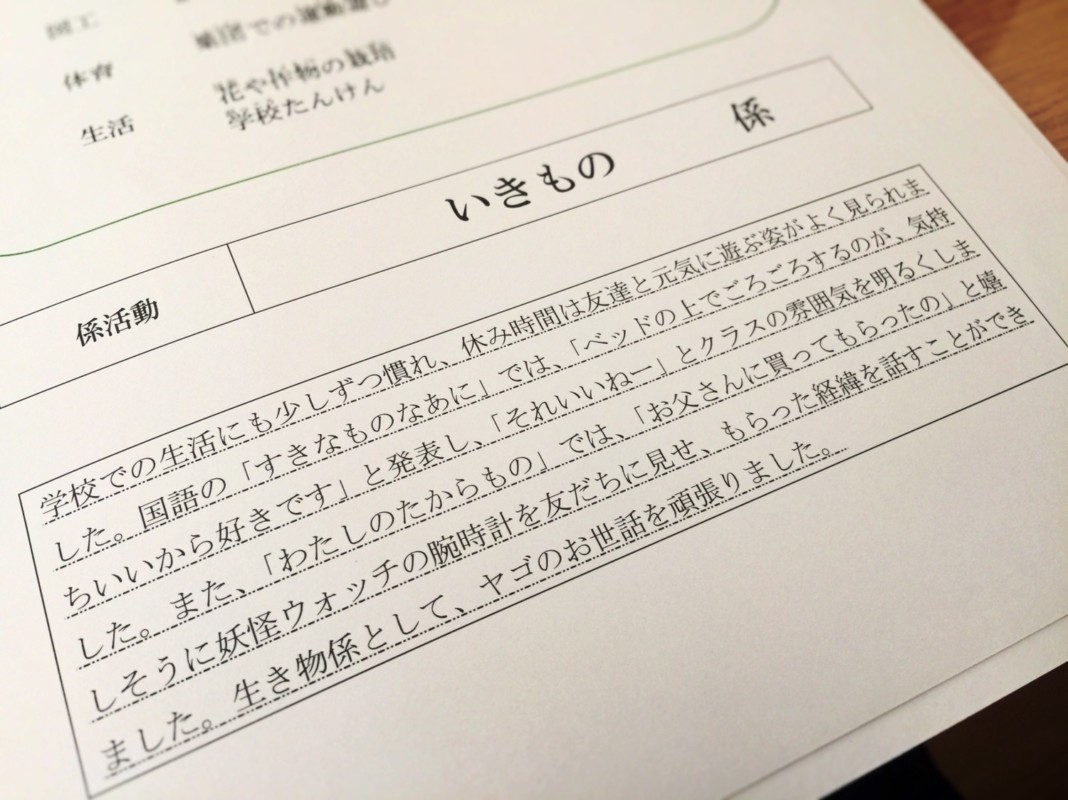 図工
集団での運動遊び
体育
花や作物の栽培
生活
学校たんけん
係活動
いきもの 係
学校での生活にも少しずつ慣れ、休み時間は友達と元気に遊ぶ姿がよく見られま
した。国語の「すきなものなあに」では、「ベッドの上でごろごろするのが、気持
ちいいから好きです」と発表し、「それいいねー」とクラスの雰囲気を明るくしま
した。また、「わたしのたからもの」では、「お父さんに買ってもらったの」と嬉
しそうに妖怪ウォッチの腕時計を友だちに見せ、もらった経緯を話すことができ
ました。生き物係として、ヤゴのお世話を頑張りました。